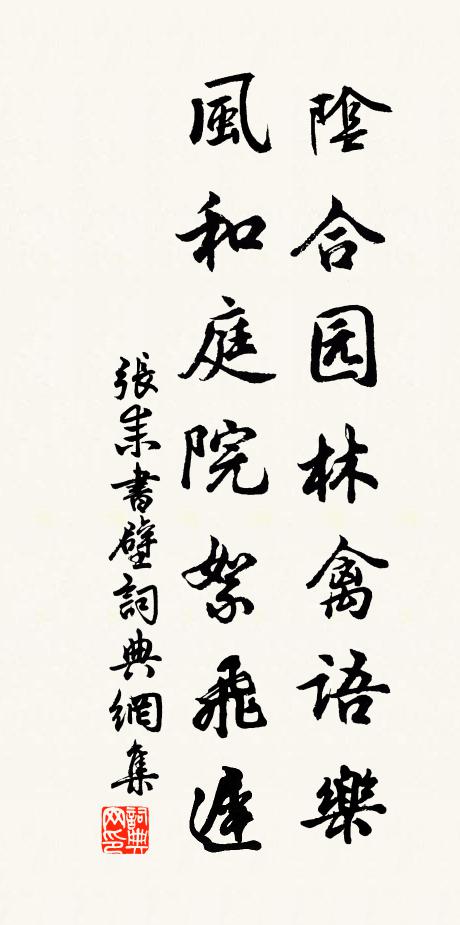 陰合园林禽語樂
風和庭院絮飛遲
張耒書壁詞典網集
詞典网印